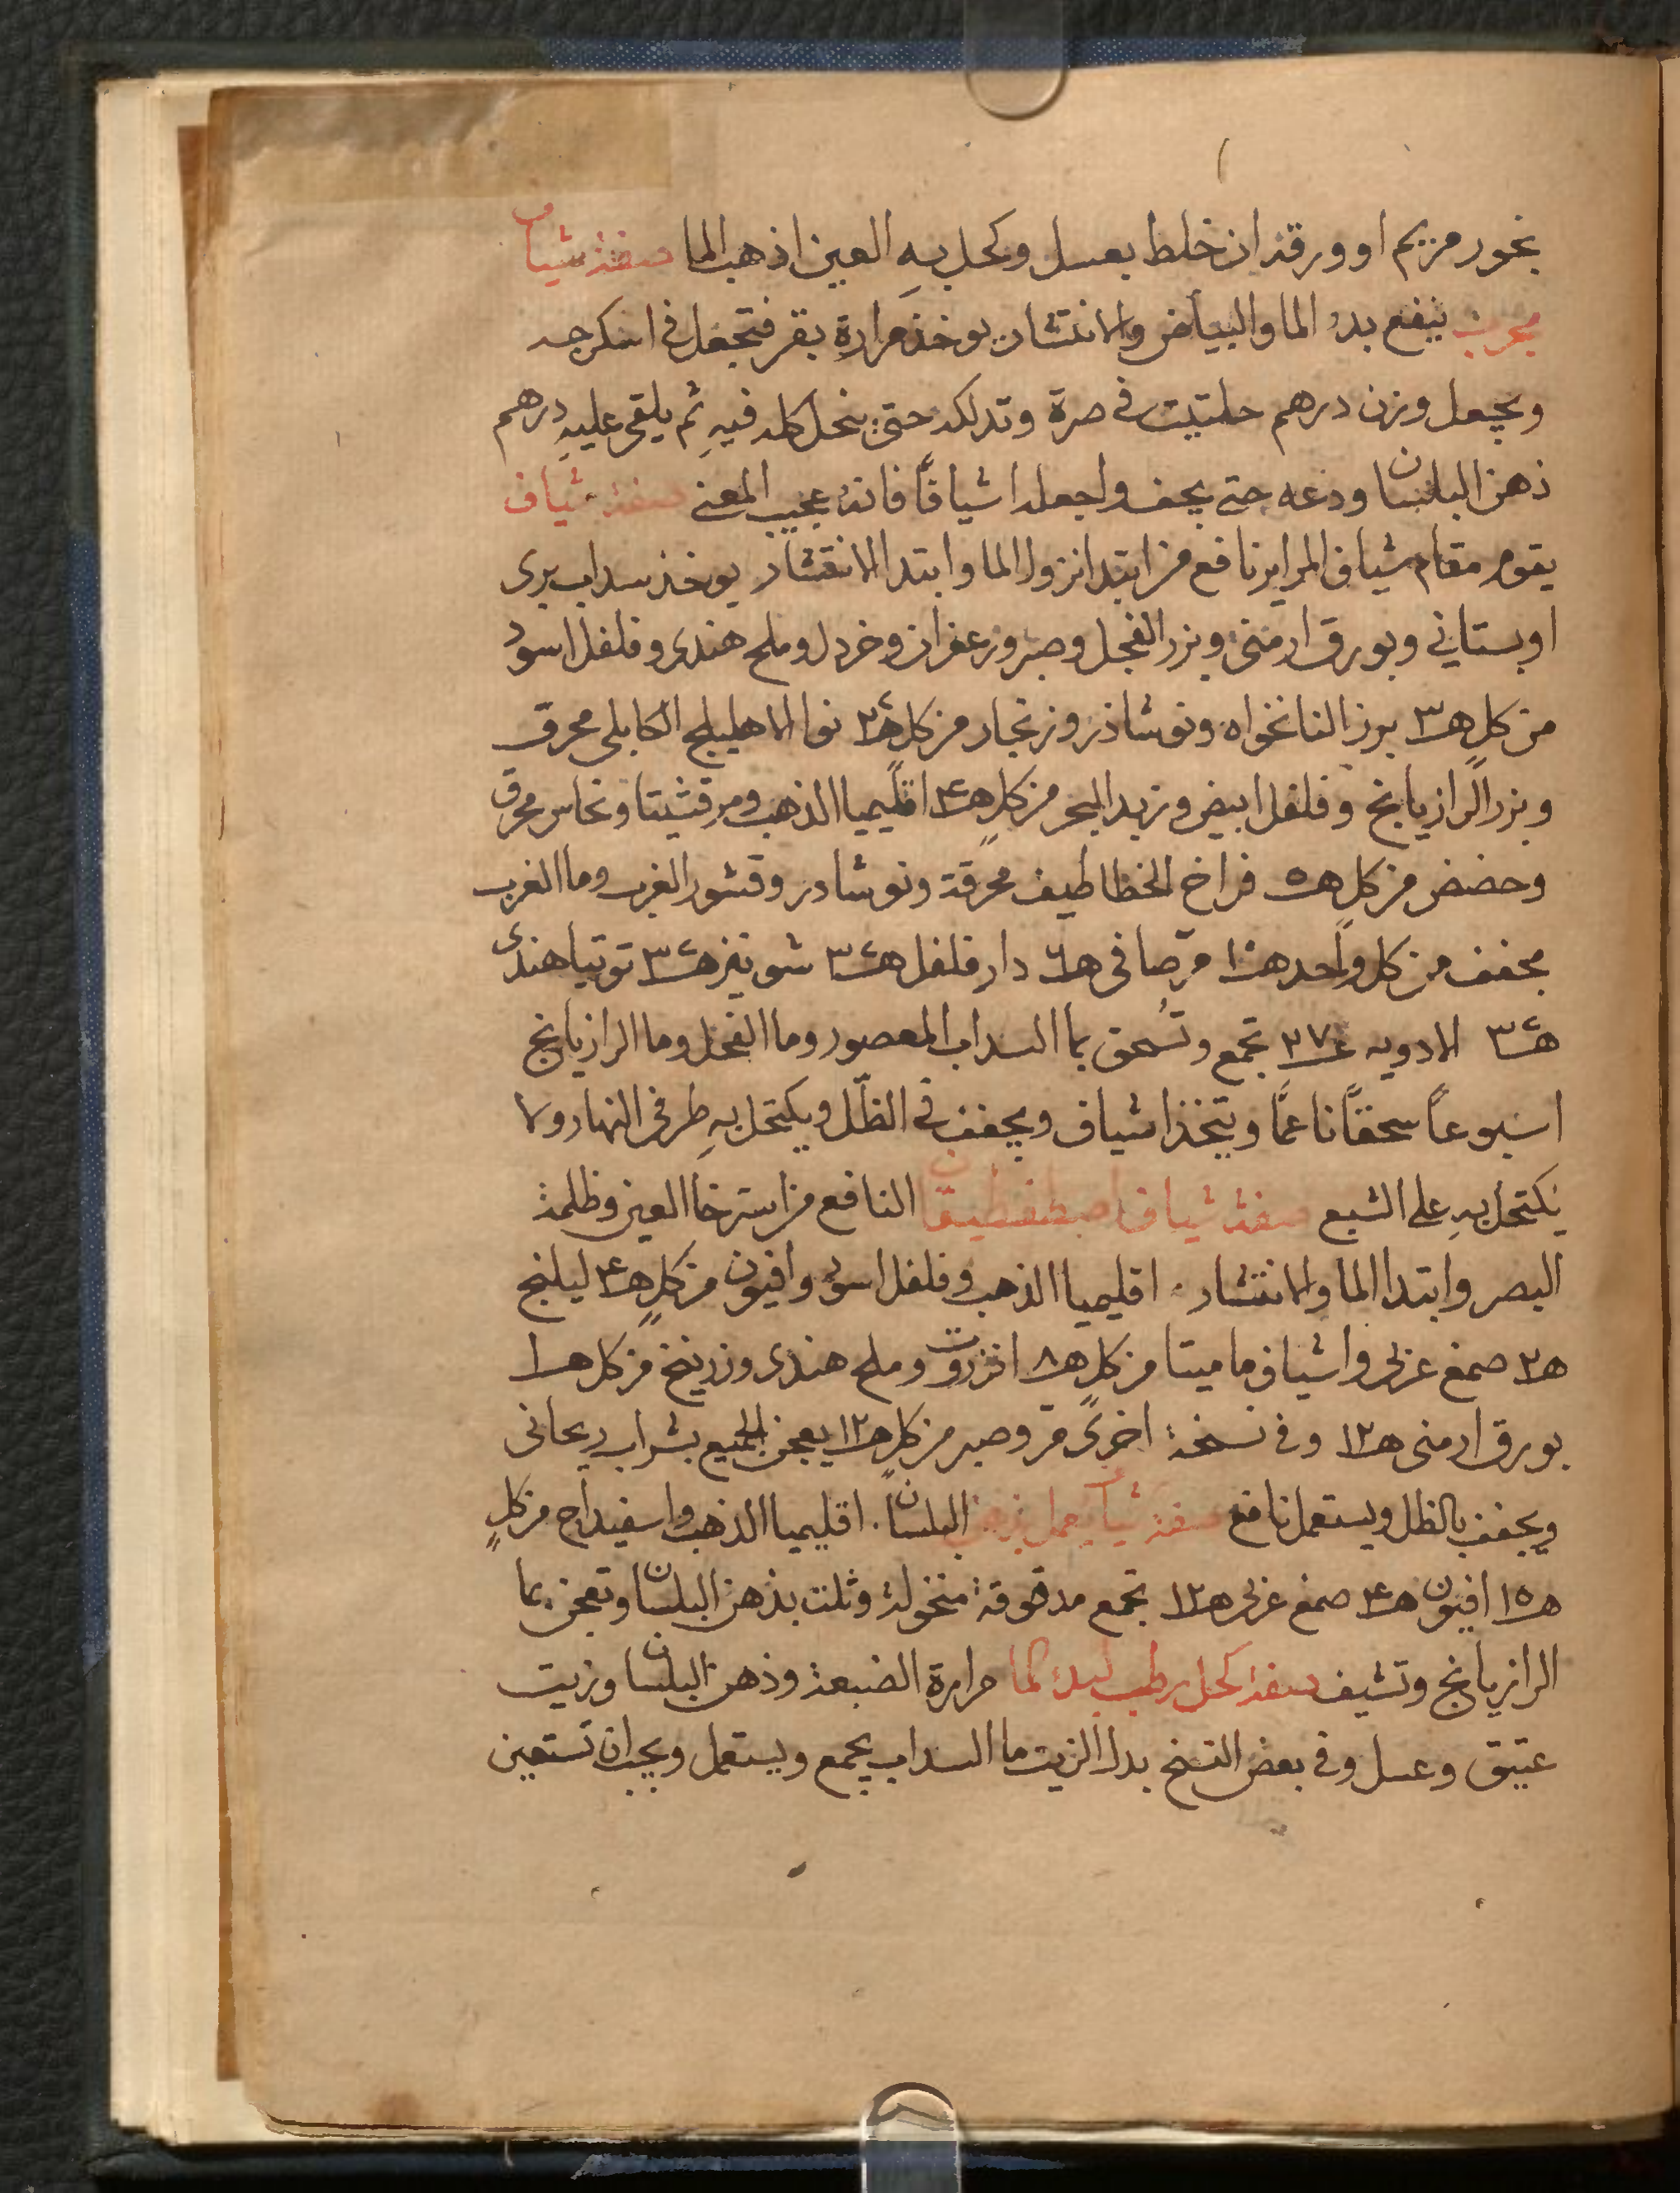 بخور مريم او ورقه ان خلط بعسل وكحل بهِ العين اذهب الما صفة شياف
مجرب ينفع بدؤ الما والبياض والانتشار يوخذ مرارة بقر فتجعل في اسكرجه
ويجعل وزن درهم حلتيت في صرة وتدلكه حتى ينحل كله فيهِ ثم يلقى عليهِ درهم
ذهن البلسان ودعه حتى يجف واجعله اشيافًا فانه عجيب المعنى صفة شياف
يقوم مقام شياف المراير نافع من ابتدا نزول الما وابتدا الانتشار يوخذ سداب بري
او بستاني وبورق ارمنى وبزر الفجل وصبر وزعفران وخردل وملح هندى وفلفل اسود
من كل هـ ٣ بزر النانخواه ونوشاذر وزنجار من كل هـ ٢ نوا الاهليلج الكابلى محرق
وبزر الرازيانج وفلفل ابيض وزبد البحر من كلٍ هـ ٤ اقليميا الذهب ومرقشيتا ونحاس محرق
وحضض من كل هـ ٥ فراخ الخطاطيف محرقة ونوشادر وقشور الغرب وما الغرب
مجفف من كل واحد هـ ١ مرّ صافى هـ ٦ دار فلفل هـ ٣ شونيز هـ ٣ توتيا هندى
هـ ٣ الادويه ٢٧ تجمع وتُسحق بما السداب المعصور وما الفجل وما الرازيانج
اسبوعاً سحقًا ناعمًا ويتخذ اشياف ويجفف في الظلّ ويكتحل بهِ طرفى النهار ولا
يكتحل بهِ على الشبع صفة شياف اصطفطيقان النافع من استرخا العين وظلمة
البصر وابتدا الما والانتشار. اقليميا الذهب وفلفل اسود وافيون من كلٍ هـ ٤ ليلنج
هـ ٢ صمغ عربى واشياف ماميتا من كل هـ ٨ انزروت وملح هندى وزرنيخ من كل هـ ١
بورق ارمنى هـ ١٢ وفي نسخة اخرى مرّ وصبر من كلٍ هـ ١٢ يعجن الجميع بشراب ريحانى
ويجفف بالظل ويستعمل نافع صفة شياف يعمل بذهن البلسان. اقليميا الذهب واسفيداج من كلٍ
هـ ١٥ افيون هـ ٤ صمغ عربى هـ ١٢ تجمع مدقوقة منخولة وتلت بذهن البلسان وتعجن بما
الرازيانج وتشيف صفة كحل رطب لبدؤ الما مرارة الضبعة وذهن البلسان وزيت
عتيق وعسل وفي بعض النسخ بدل الزيت ما السداب يجمع ويستعمل ويجب ان تستعين